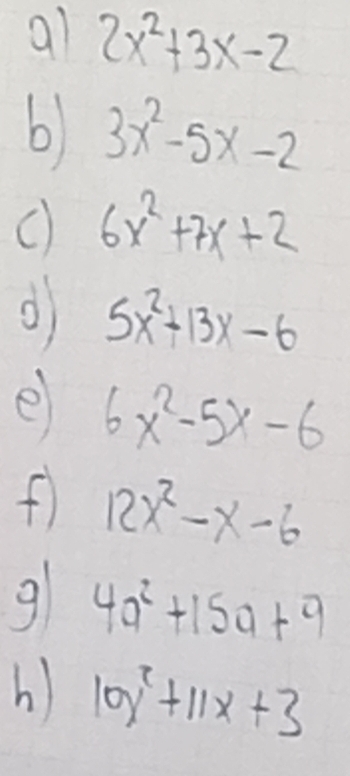 a) 2x²+3x-2
b) 3x²-5x-2
c) 6x²+7x+2
d) 5x²+13x-6
e) 6x²-5x-6
f) 12x²-x-6
g) 4a²+15a+9
h) 10x²+11x+3